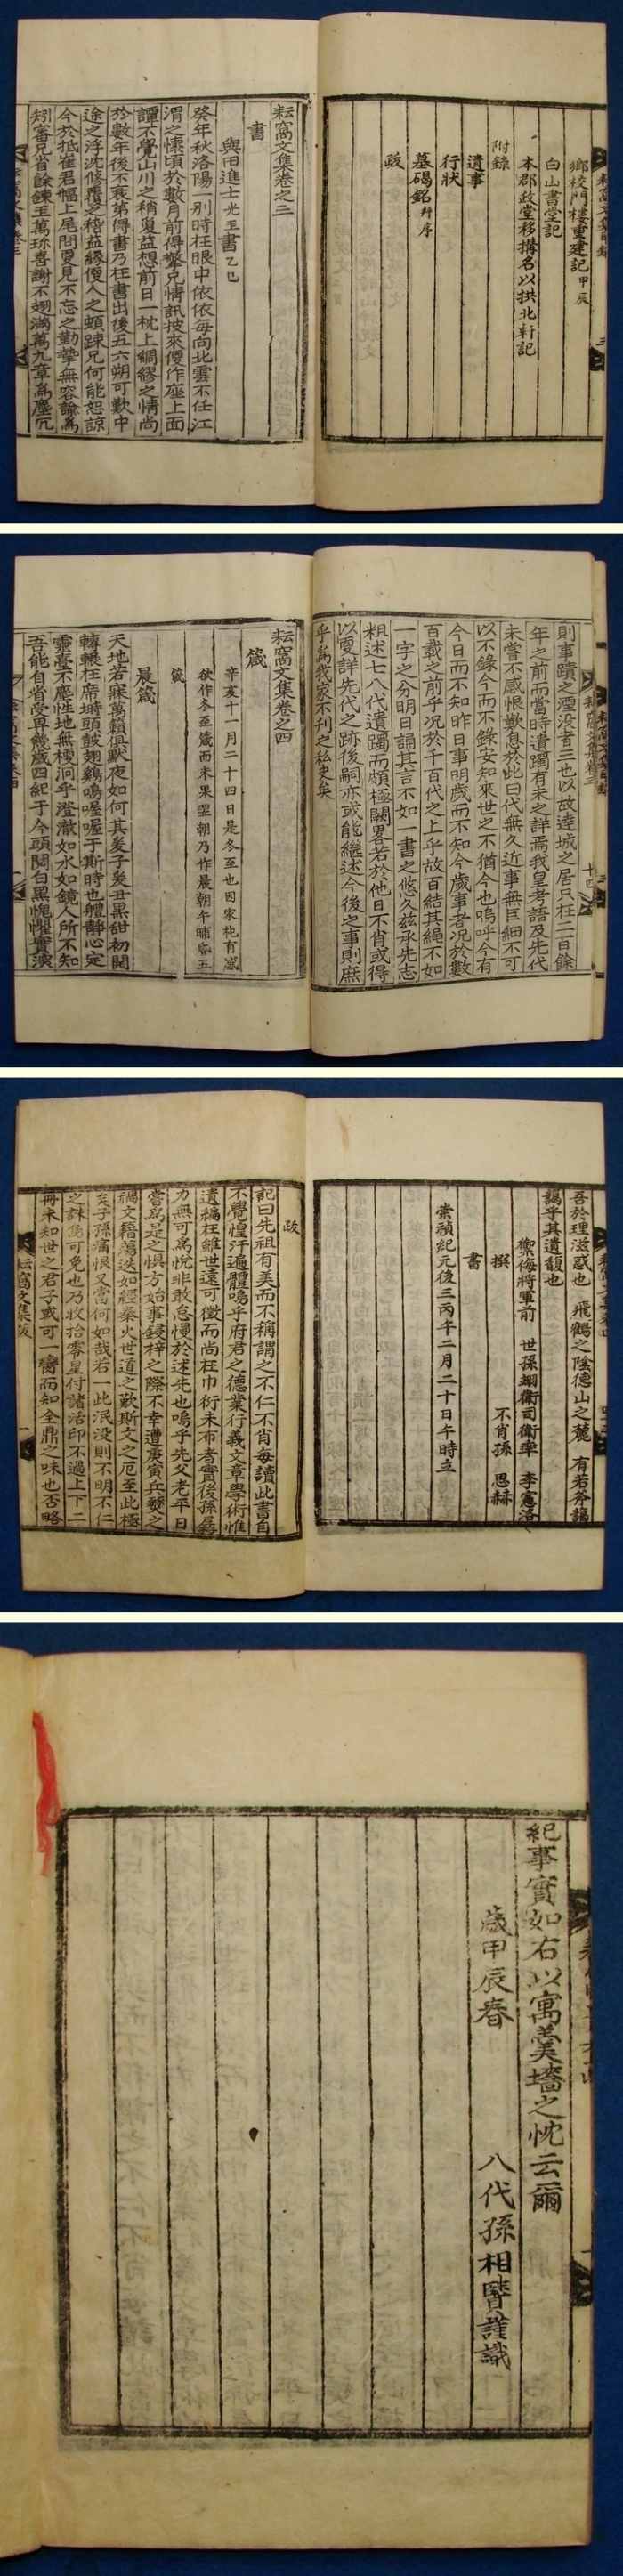 鄉校門樓重建記甲辰
白山書堂記
本郡政堂移搆名以拱北軒記
附錄
遺事
行狀
墓碣銘幷序
跋
耘窩文集卷之三
書
與田進士光玉書乙巳
癸年秋洛陽一別時在眼中依依每向北雲不任江
渭之懷頃於數月前得擎兄情訊披來僾作座上面
譚不覺山川之稍夐益想前日一枕上綢繆之情尚
於數年後不衰第得書乃在書出後五六朔可歎中
途之浮沈修覆之稽益緣僾人之頉疎兄何能恕諒
今於抵崔君幅上尾問夏見不忘之勤摯無容諭爲
矧審兄省餘鍊玉萬珎喜謝不翅滿萬九章爲塵冗
則事蹟之湮没者三也以故達城之居只在二百餘
年之前而當時遺躅有未之詳焉我皇考語及先代
未嘗不感恨歎息於此曰代無久近事無巨細不可
以不錄今而不錄安知來世之不猶今也嗚呼今有
今日而不知昨日事明歲而不知今歲事者況於數
百載之前乎況於千百代之上乎故百結其繩不如
一字之分明日誦其言不如一書之悠久玆承先志
粗述七八代遺躅而頗極闕畧若於他日不肖或得
以夏詳先代之跡後嗣亦或能繼述今後之事則庶
乎爲我家不刋之私史矣
耘窩文集卷之四
箴
辛亥十一月二十四日是冬至也因家衪有感
欲作冬至箴而未果翌朝乃作晨朝午晡昏五
箴
晨箴
天地若寐萬籟俱默夜如何其亥子矣丑黑甜初闋
轉輾在席塒頭鼓翅鷄鳴喔喔于斯時也軆靜心定
靈臺不塵性地無梗洞乎澄澈如水如鏡人所不知
吾能自省受畀幾歲四紀于今頭鬪白黑愧懼實深
吾於理滋惑也 飛鶴之陰德山之麓 有若斧謁
謁乎其遺馥也
禦侮將軍前 世孫翊衛司衛率 李憲洛
撰 不肖孫 思赫
書
崇禎紀元後三丙午二月二十日午時立
跋
記曰先祖有美而不稱謂之不仁不肖每讀此書自
不覺惶汗遍體嗚乎府君之德業行義文章學術惟
遺編在雖世遠可徵而尚在巾衍未布者實後孫孱
力無可爲忱非敢怠慢於述先也嗚乎先父老平日
嘗爲是之惧方始事鋟梓之際不幸遭庚寅兵燹之
禍文籍蕩迭如經秦火世道之歎斯文之厄至此極
矣子孫痛恨又當何如哉若一此泯没則不明不仁
之誅烏可免也乃收拾零星付諸活印不過上下二
冊未知世之君子或可一臠而知全鼎之味也否略
紀事實如右以寓羹墻之忱云爾
歲甲辰春 八代孫相賢謹識